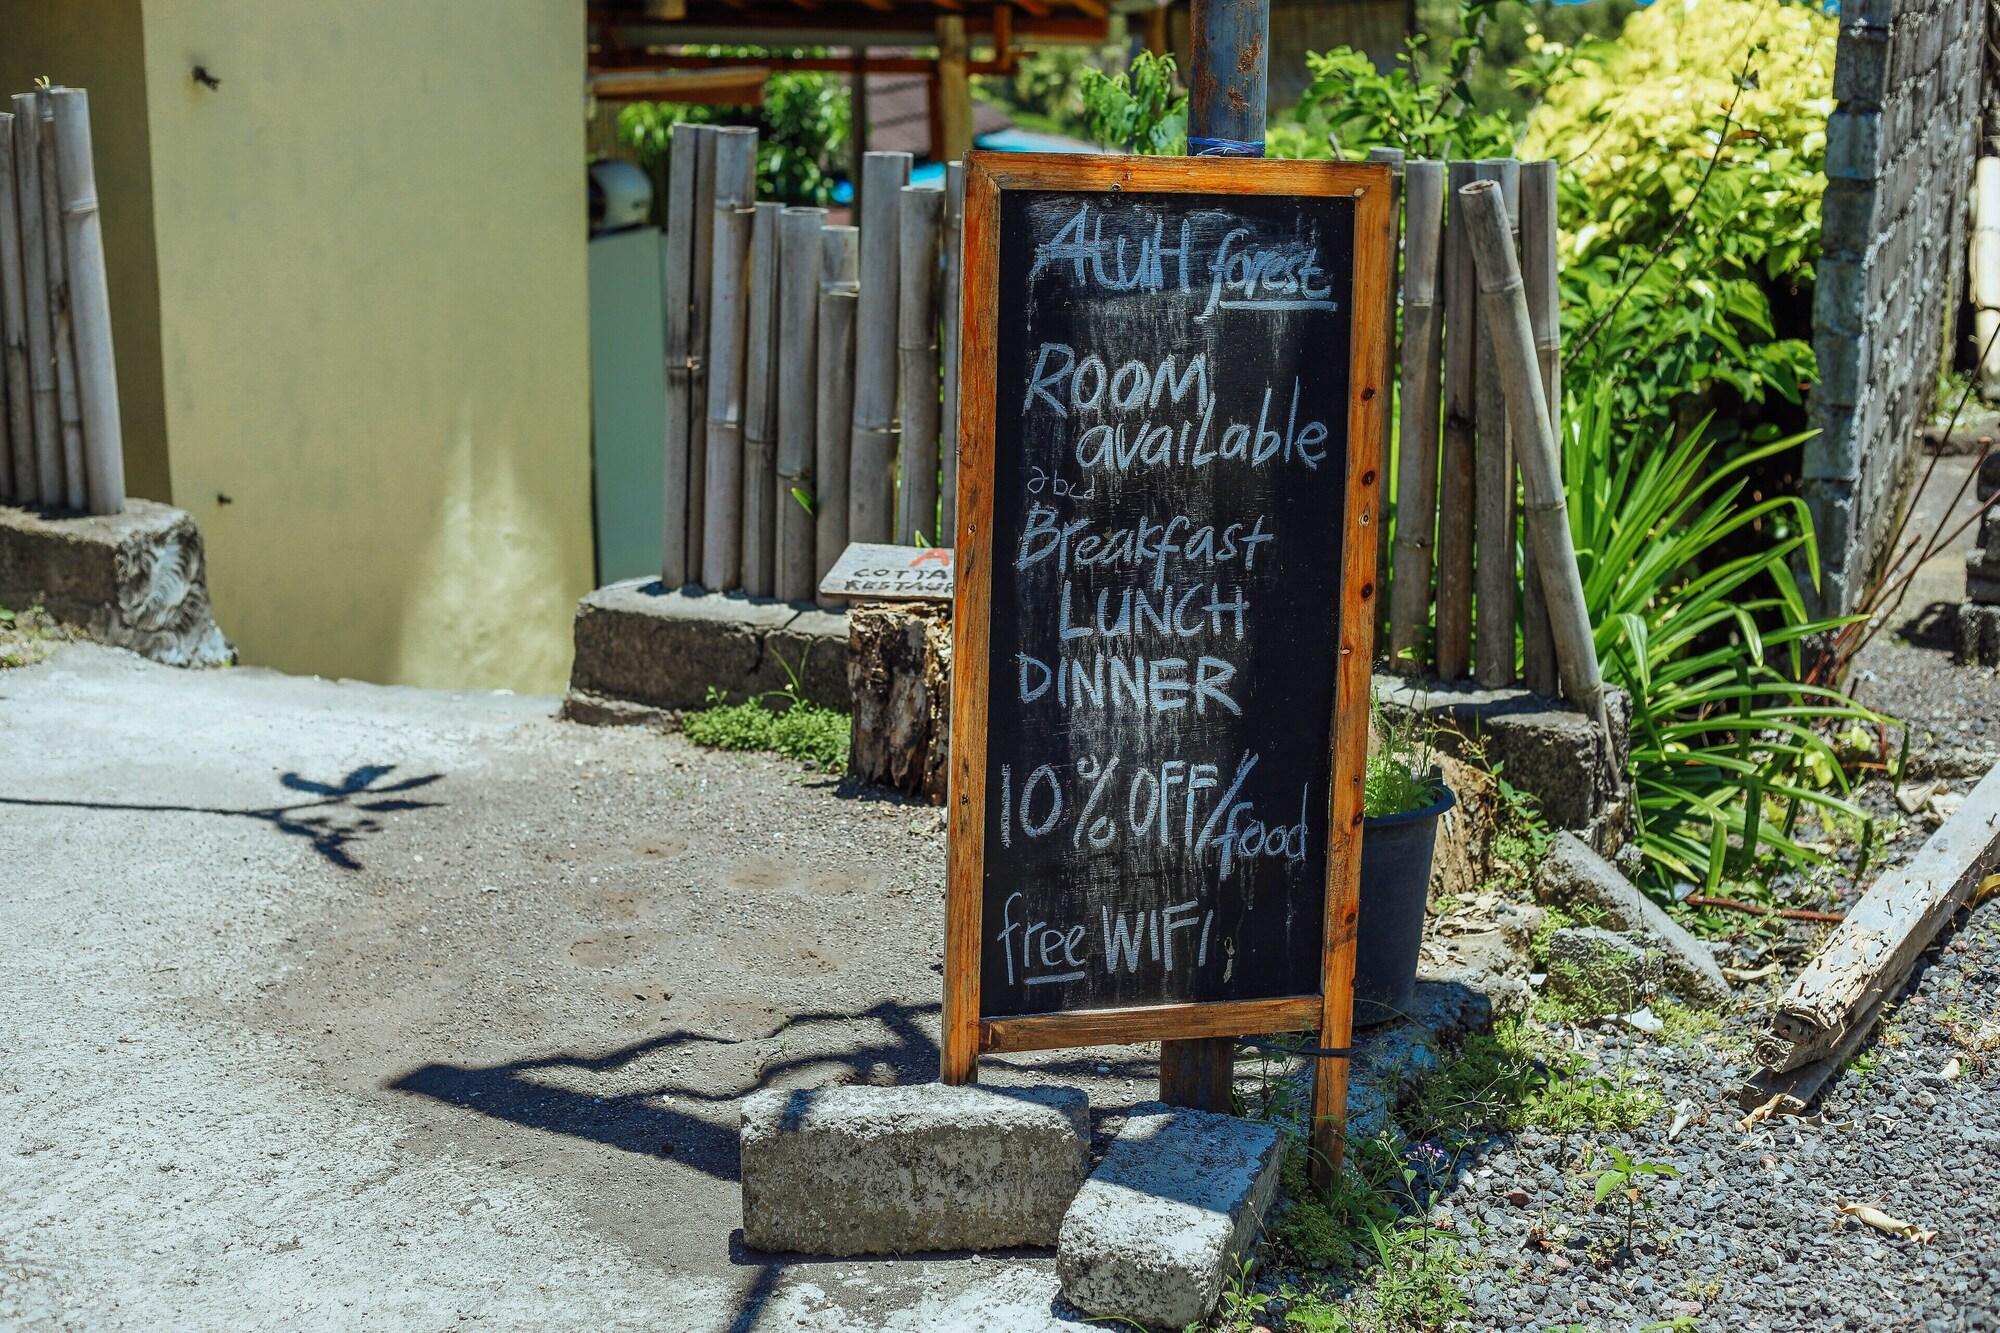 AtuH forest
ROOM
available
abcd
Breakfast
LUNCH
DINNER
10% OFF/food
free WIFI
A
COTTA
RESTAUR